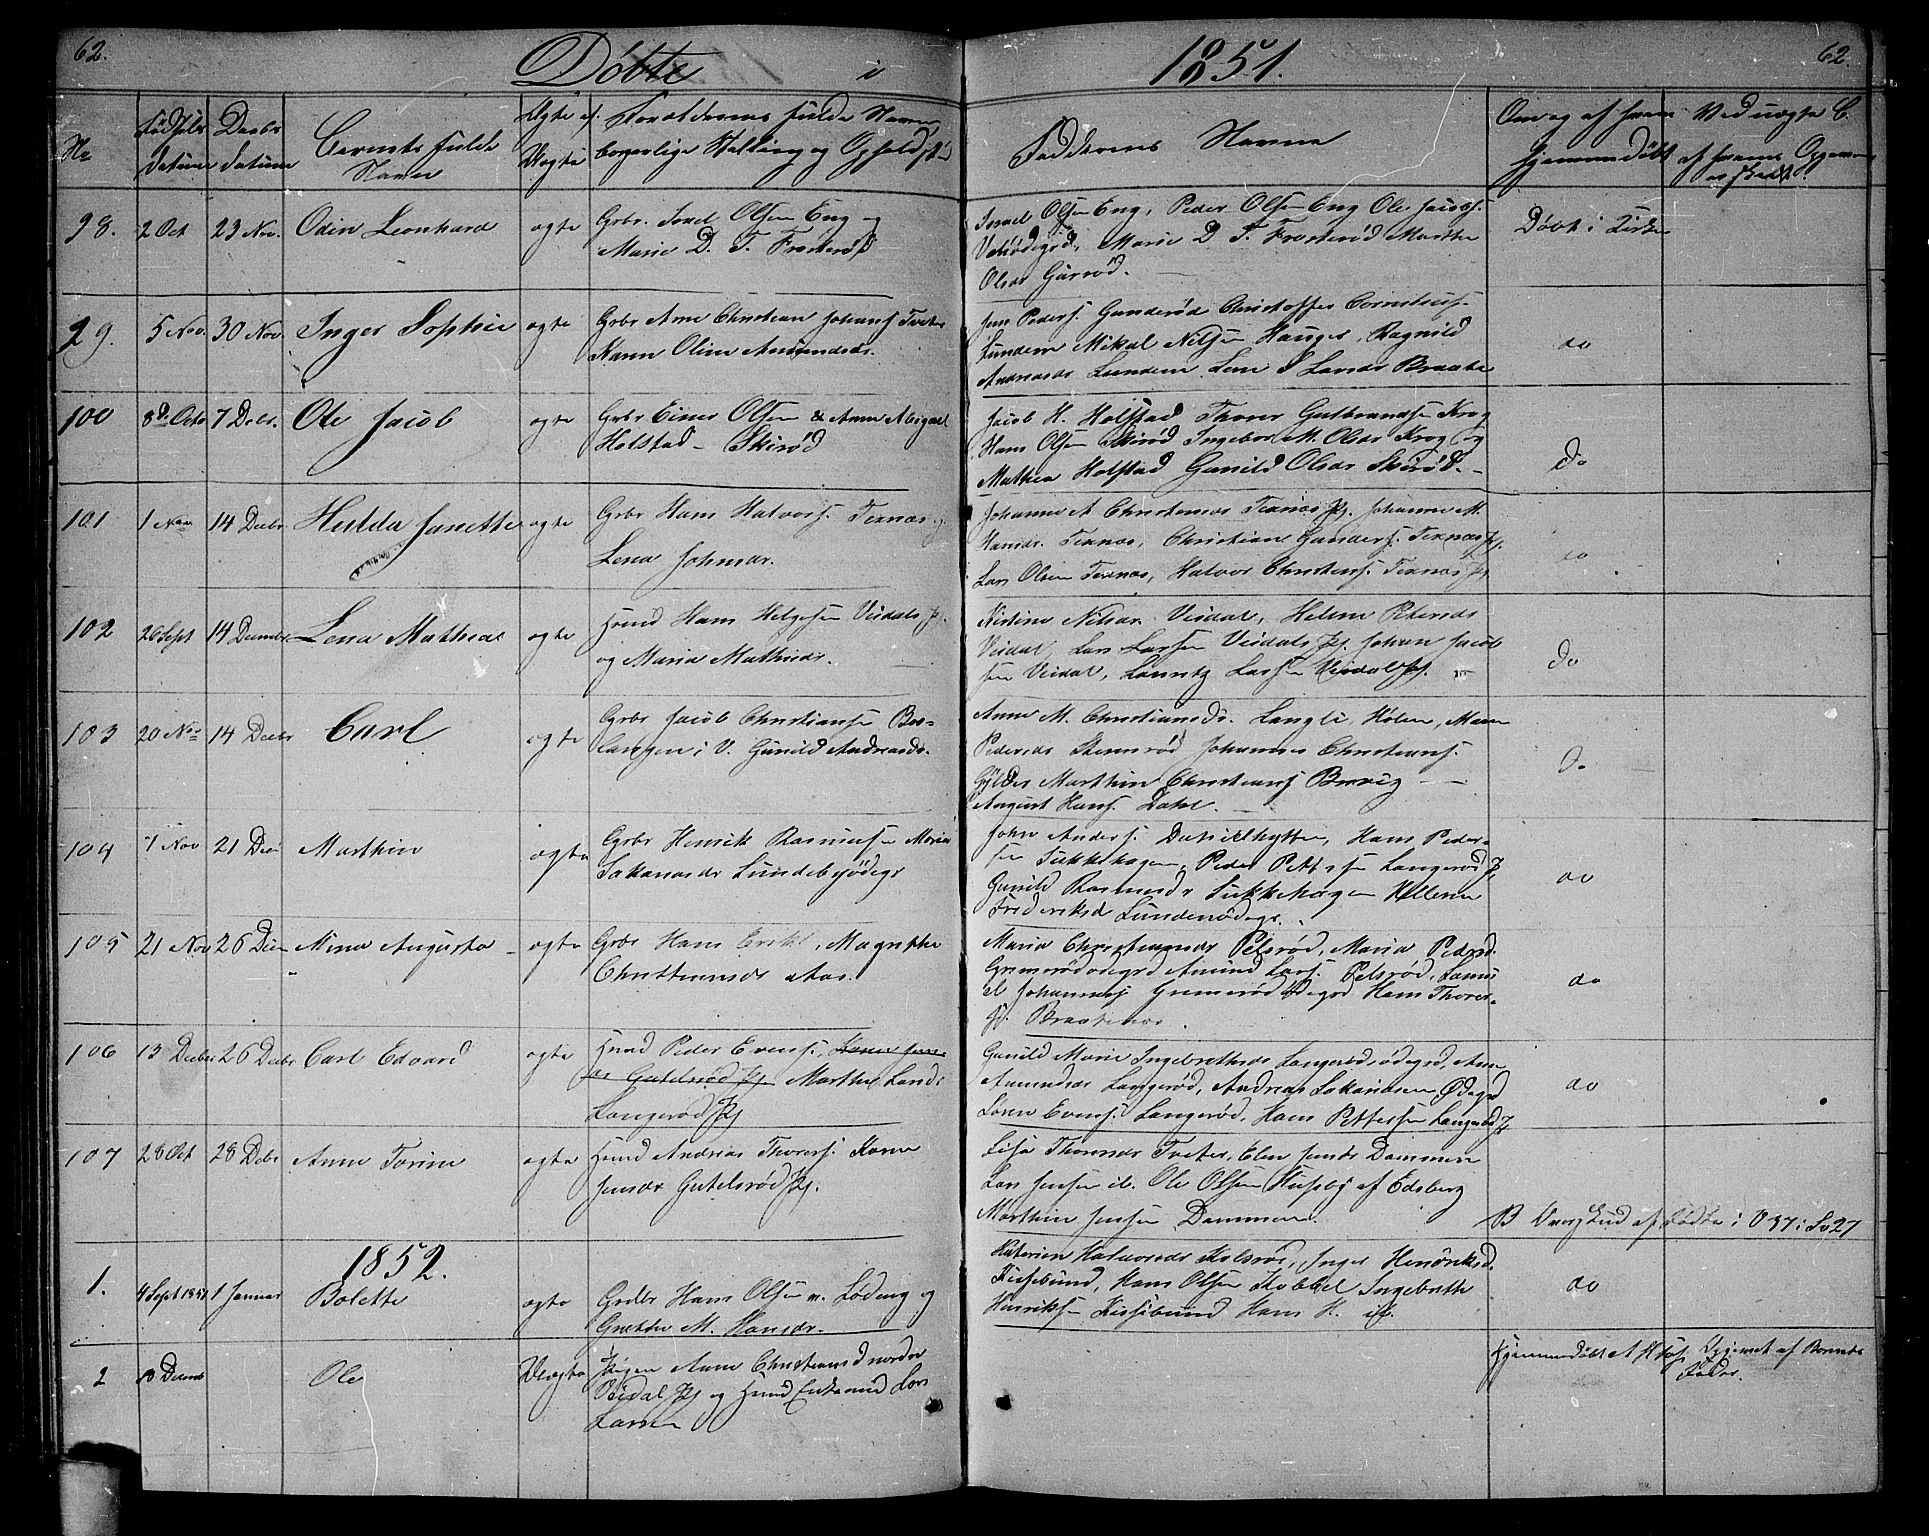 62.
Döbte i 1851.
62.
No
Fødsels datum
Daabs datum
Barnets fulde Navn
Ægte el. Uægte
Forældrenes fulde Navne, borgerlige Stilling og Opholdsted
Faddernes Navne
Om og af hvem hjemmedøbt
Ved uægte B. af hvem
98. 2 Oct 23 Nov. Odin Leonhard ægte
Grbr. Israel Olsen Eng og
Marie D. T. Frosterød
Israel Olsen Eng, Peder Olsen Eng Ole Jacobs.
Marie D. T. Frosterød Marthe
Olsdr Garrød.
Døbt i Kirke
99. 5 Nov. 30 Nov. Inger Sophie ægte
Grbr Arne Christian Johans. Tveter
Karen Oline Amundsdr.
Jens Peders. Gunderød Christoffer Cornelius.
Lundem Mikal Nilsen Hauger, Ragnild
Andreasdr Lundem Braate
do
100 8d. Octo 7 Debr. Ole Jacob ægte
Grbr Einer Olsen & Anne Abigael
Holstad - Skirød
Jacob H. Holstad Thorer Gulbrandsen Krog
Hans Olsen Skirød Ingebor M. Olsdr Krog og
Mathea Holstad Gunild Olsdr Skirød. -
do
101 1 Nov 14 Decbr. Hulda Janette ægte
Grbr Hans Halvors. Texnæs og
Lena Johnsdr.
Johanne A Christensdr Texnæs Ej. Johanne M.
Hansdr. Texnæs, Christian Gunders. Texnæs Ej.
Lars Olsen Texnæs, Halvor Christens. Texnæs Ej.
do
102 26 Sept 14 Decembr. Lena Mathea ægte
Hmd Hans Helgesen Veidals Ej.
og Maria Mathisdr.
Kirstine Nilsdr. Veidal, Helene Petersdr
Veidal, Lars Larsen Veidals Ej. Johan Jacob
sen Veidal, Lauritz Larsen Veidal Ej.
do
103 20 Nov 14 Decbr Carl ægte
Grbr Jacob Christiansen Bra-
langen i V. Gunild Andreasdr.
Anne M. Christiansdr. Langli, Holen, Maren
Pedersdr Stensrød Johannes Christians.
Gylder Marthin Christians. Brevig
August Hans. Dahl.
do
104 7 Nov 21 Dec Marthin ægte
Grbr Henrik Rasmusen Maria
Sakariasdr Lundebyødegr
John Anders. Danielhytten, Hans Peder-
sen Sukkehagen, Peder Pettersen Langerød Ej
Gunild Rasmusdr Sukkehagen Helene
Frederiksd Lundenødegr.
do
105 21 Nov 26 Decm Nina Augusta ægte
Grbr Hans Eriks. Magrethe
Christiansdr Aas.
Maria Christiansdr Pelsrød, Maria Pedersd.
Grimerødødegrd Amund Lars. Pelsrød, Samu
el Johannes. Grimerødødegrd Hans Thorer-
s. Braatenæs.
do
106 13 Decbr 26 Decbr Carl Edvard ægte
Hmd Peder Evens. Karen Jens-
dr Gutelsrød Ej Marthe Larsdr
Langerød Ej
Gunild Marie Ingebrethsdr Langerødsødegrd, Anne
Amundsdr Langerød, Andreas Sakariasen Ødegrd
Søren Evens. Langerød, Hans Pettersen Langerød Ej
do
107 28 Oct 28 Debr Anne Torine ægte
Hmd Andreas Thorers. Karen
Jensdr Gutelsrød Ej.
Lisa Thorersdr Tveter, Elen Jensdr Dammen
Lars Jensen ib. Ole Olsen Husby af Edsberg
Marthin Jensen Dammen.
B Overskud af Fødte i V 37 i Sv 27
1852.
1. 4 Sept 1851 1 Januar Bolette ægte
Grdbr Hans Olsen v. Lødeng og
Grethe M. Hansdr.
Katerien Halvorsdr Kolsrød, Inger Henriksd.
Kirsebund, Hans Olsen Kobbel Ingebreth
Henriksen Kirsebund Hans H. ib.
do
2 13 Decmb Ole Uægte
Pigen Anne Christiansd nordre
Veidal Ej og Hmd Enkemand Lars
Larsen
Hjemmedøbt
Opgivet af Barnets
Fader.